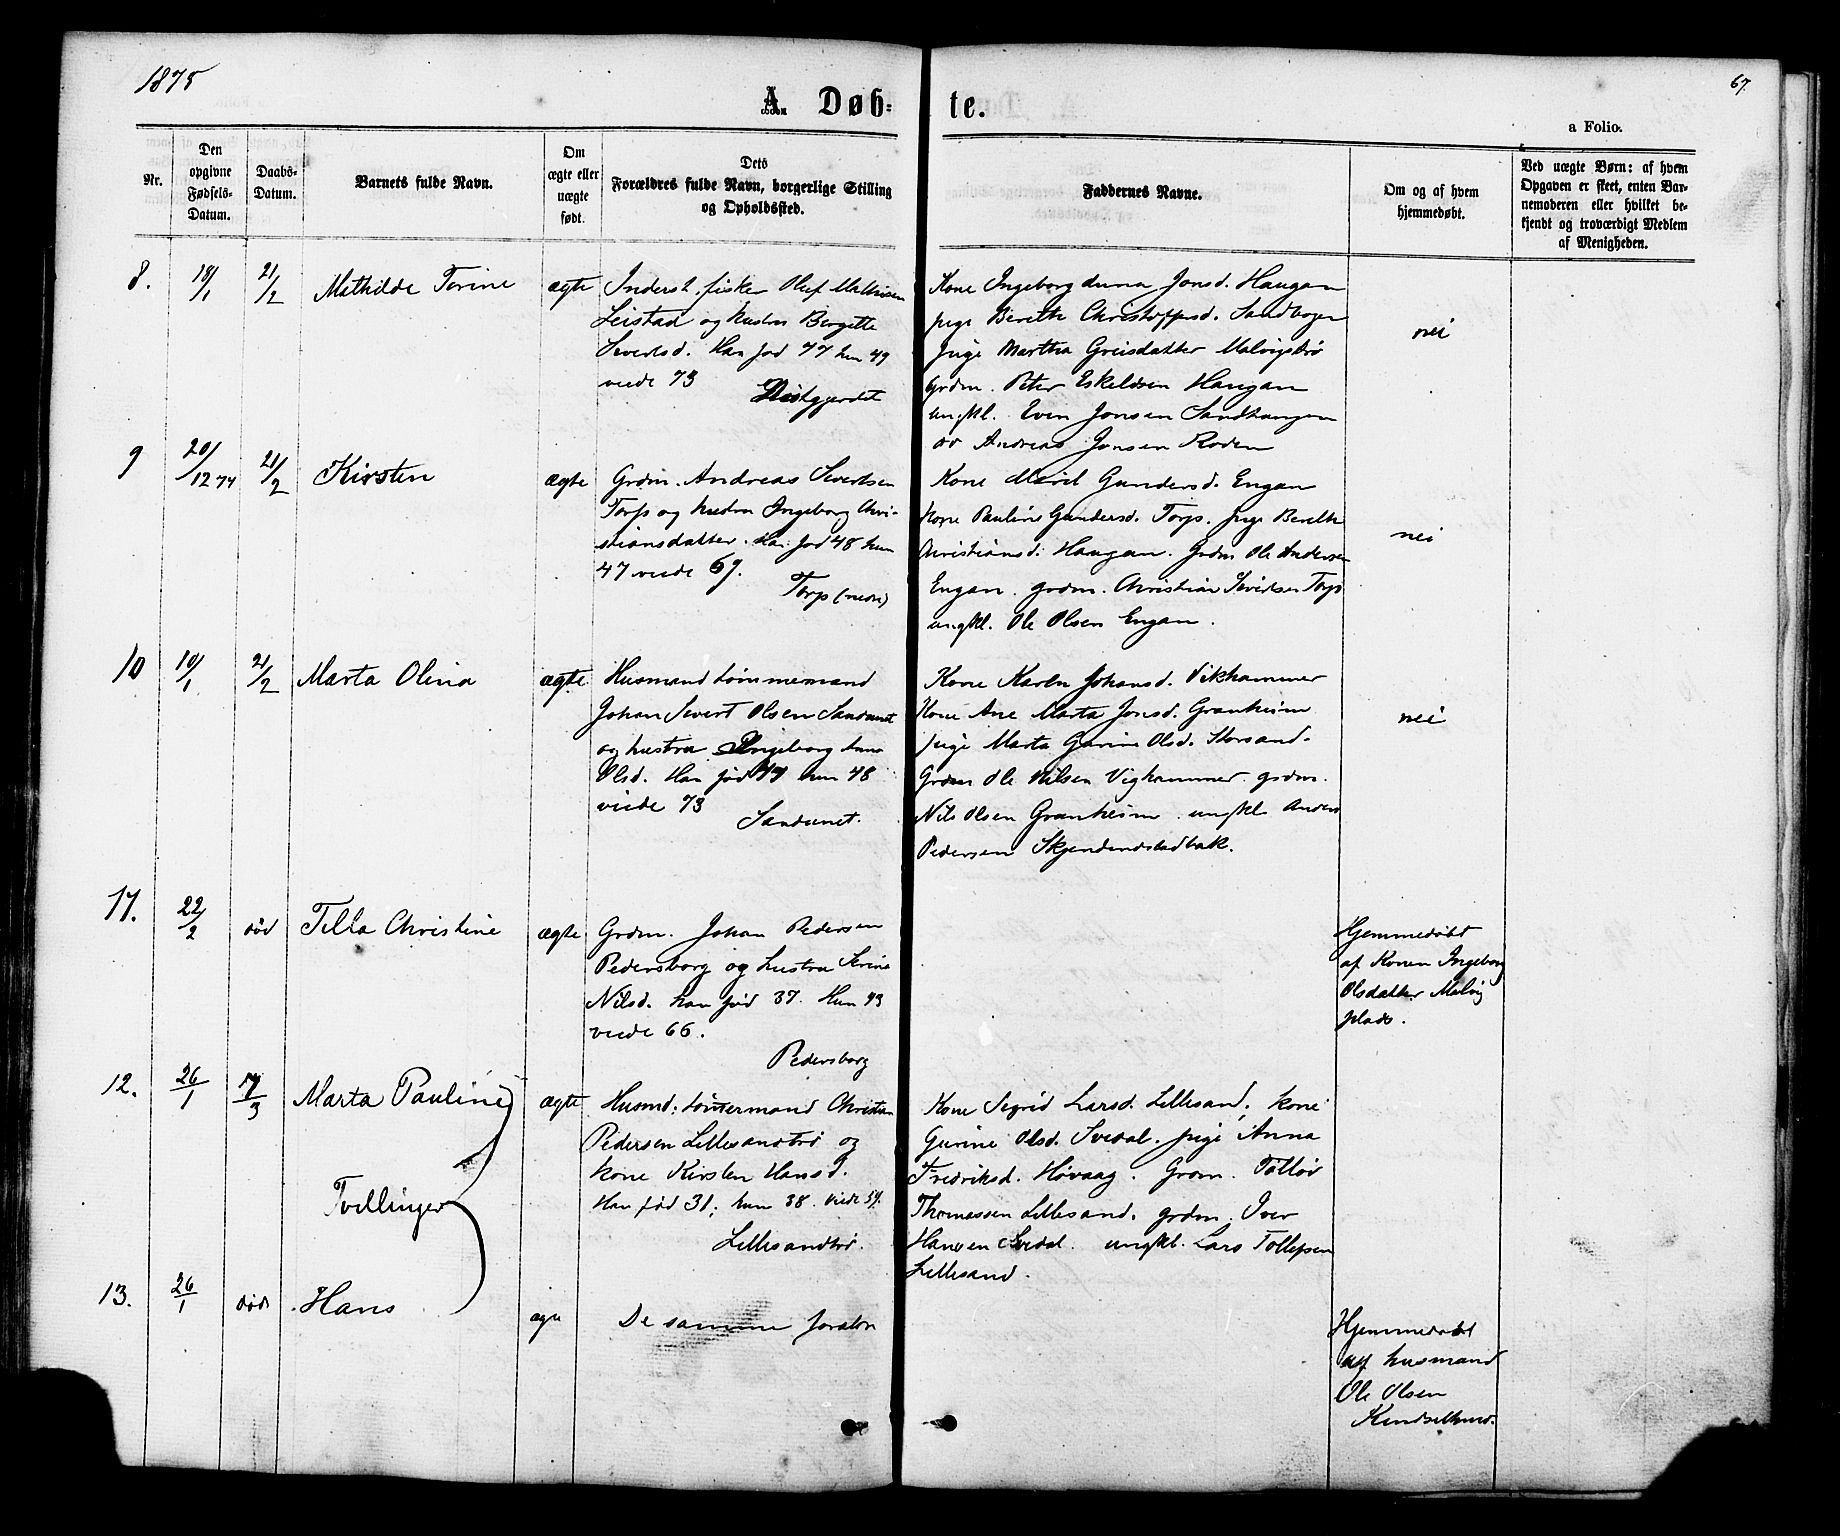 1875
67.
A. Døb-
te.
a Folio.
Nr.
Den
opgivne
Fødsels-
Datum.
Daabs-
Datum.
Barnets fulde Navn.
Om
ægte eller
uægte
født.
Dets
Forældres fulde Navn, borgerlige Stilling
og Opholdssted.
Faddernes Navne.
Om og af hvem
hjemmedøbt.
Ved uægte Børn: af hvem
Opgaven er skeet, enten Bar-
nemoderen eller hvilket be-
kjendt og troværdigt Medlem
af Menigheden.
8.
18/1
21/2
Mathilde Torine
ægte
Inderst. fisker Oluf Mathisen
Leistad og hustru Bergitte
Sivertsd. Han fød 47 hun 49
viede 73
Kone Ingeborg Anna Jonsd. Haugan
pige Bereth Christoffersd.
pige Martha Greisdatter Malvigstrø
Grdm. Peter Eskildsen Haugan
ungkl. Even Jonsen Sandhaugen
do Andreas Jonsen Roden
nei
9
20/12 74
21/2
Kirsten
ægte
Grdm. Andreas Sivertsen
Torp og hustru Ingeborg Chri-
stiansdatter. Han fød 48 hun
47 viede 69.
Torp (nedre)
Kone Marit Gundersd. Engan
Kone Pauline Gundersd. Torp. pige Bereth
Christiansd. Haugan. Grdm Ole Andersen
Engan. grdm. Christian Sivertsen Torp
ungkl. Ole Olsen Engan.
nei
10
10/1
21/2
Marta Olina
ægte
Husmand tømmermand
Johan Sivert Olsen Sandunet
og hustru Ingeborg Anna
Olsd. Han fød 47 hun 48
viede 73
Sandunet.
Kone Karen Johansd. Vikhammer
Kone Ane Marta Jonsd. Granheim
pige Marta Gurine Olsd. Storsand.
Grdm Ole Nilsen Vighammer. grdm.
Nils Olsen Granheim. ungkl Anders
Pedersen Skjenaldstadbak.
nei
11.
22/2
død
Tilla Christine
ægte
Grdm. Johan Pedersen
Pedersborg og hustru Serine
Nilsd. han fød 37. Hun 43
viede 66.
Pedersborg
Hjemmedøbt
af Konen Ingeborg
Olsdatter Malvig
plads.
12.
26/1
14/3
Marta Pauline
ægte
Husmd: tømermand Christian
Pedersen Lillesandtrø og
kone Kirsten Hansd.
Han fød 31; hun 38. viede 59.
Lillesandtrø.
Kone Sigrid Larsd. Lillesand. kone
Gurine Olsd. Svedal. pige Anna
Fredriksd. Høvaag. Grdm. Tollov
Thomassen Lillesand. grdm. Iver
Hansen Svedal. ungkl. Lars Tollefsen
Lillesand.
Tvillinger
13.
26/1
død
Hans
ægte
De samme foreldre
Hjemmedøbt
af husmand
Ole Olsen